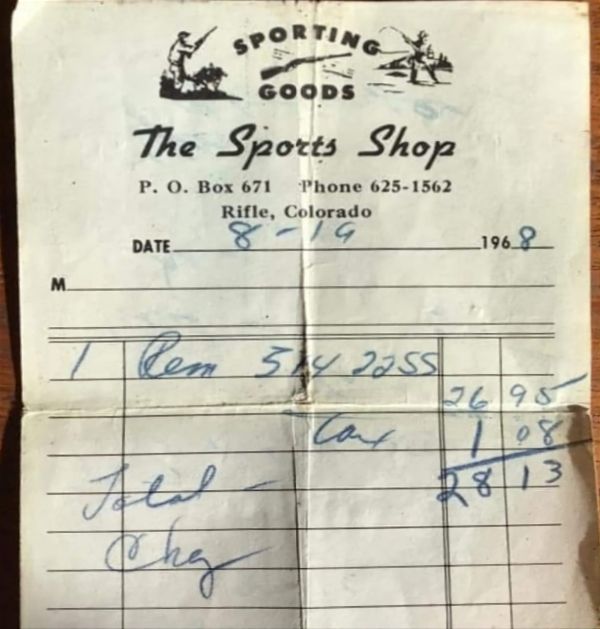 SPORTING
GOODS
The Sports Shop
P. O. Box 671 Phone 625-1562
Rifle, Colorado
DATE 8-19 1968
M
1 Rem 514 22SS
26 95
Tax 1 08
Total - 28 13
Chg